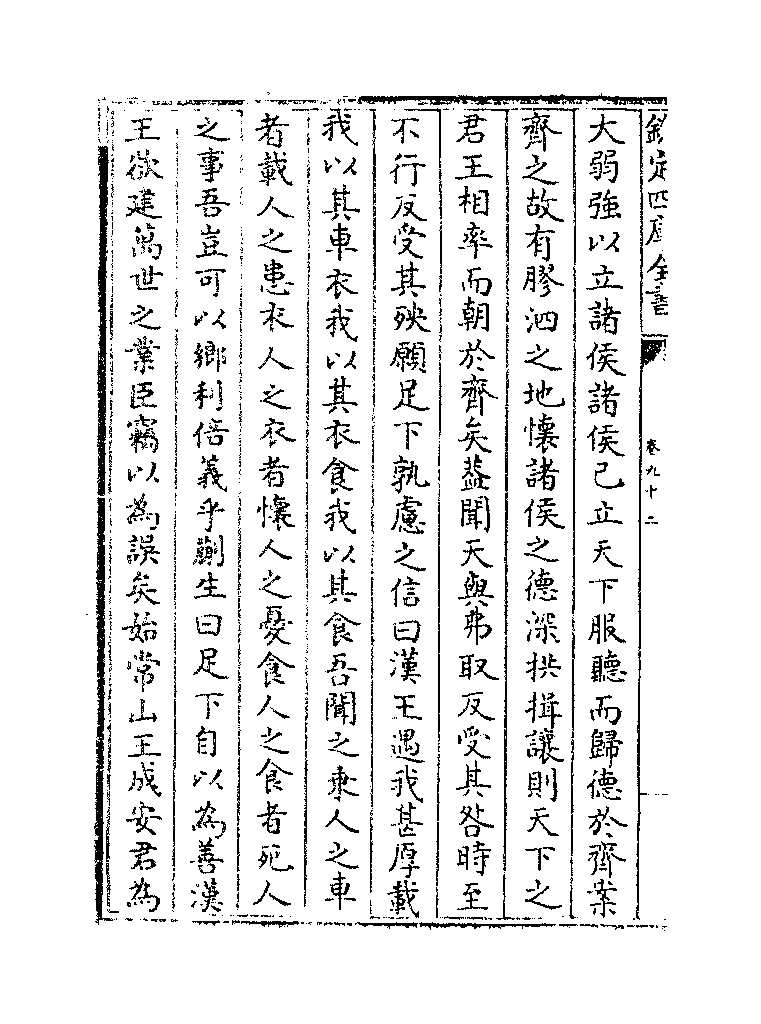 欽定四庫全書
卷九十二
大弱強以立諸侯諸侯已立天下服聽而歸德於齊案
齊之故有膠泗之地懷諸侯之德深拱揖讓則天下之
君王相率而朝於齊矣葢聞天與弗取反受其咎時至
不行反受其殃願足下孰慮之信曰漢王遇我甚厚載
我以其車衣我以其衣食我以其食吾聞之乘人之車
者載人之患衣人之衣者懷人之憂食人之食者死人
之事吾豈可以鄉利倍義乎蒯生曰足下自以為善漢
王欲建萬世之業臣竊以為誤矣始常山王成安君為